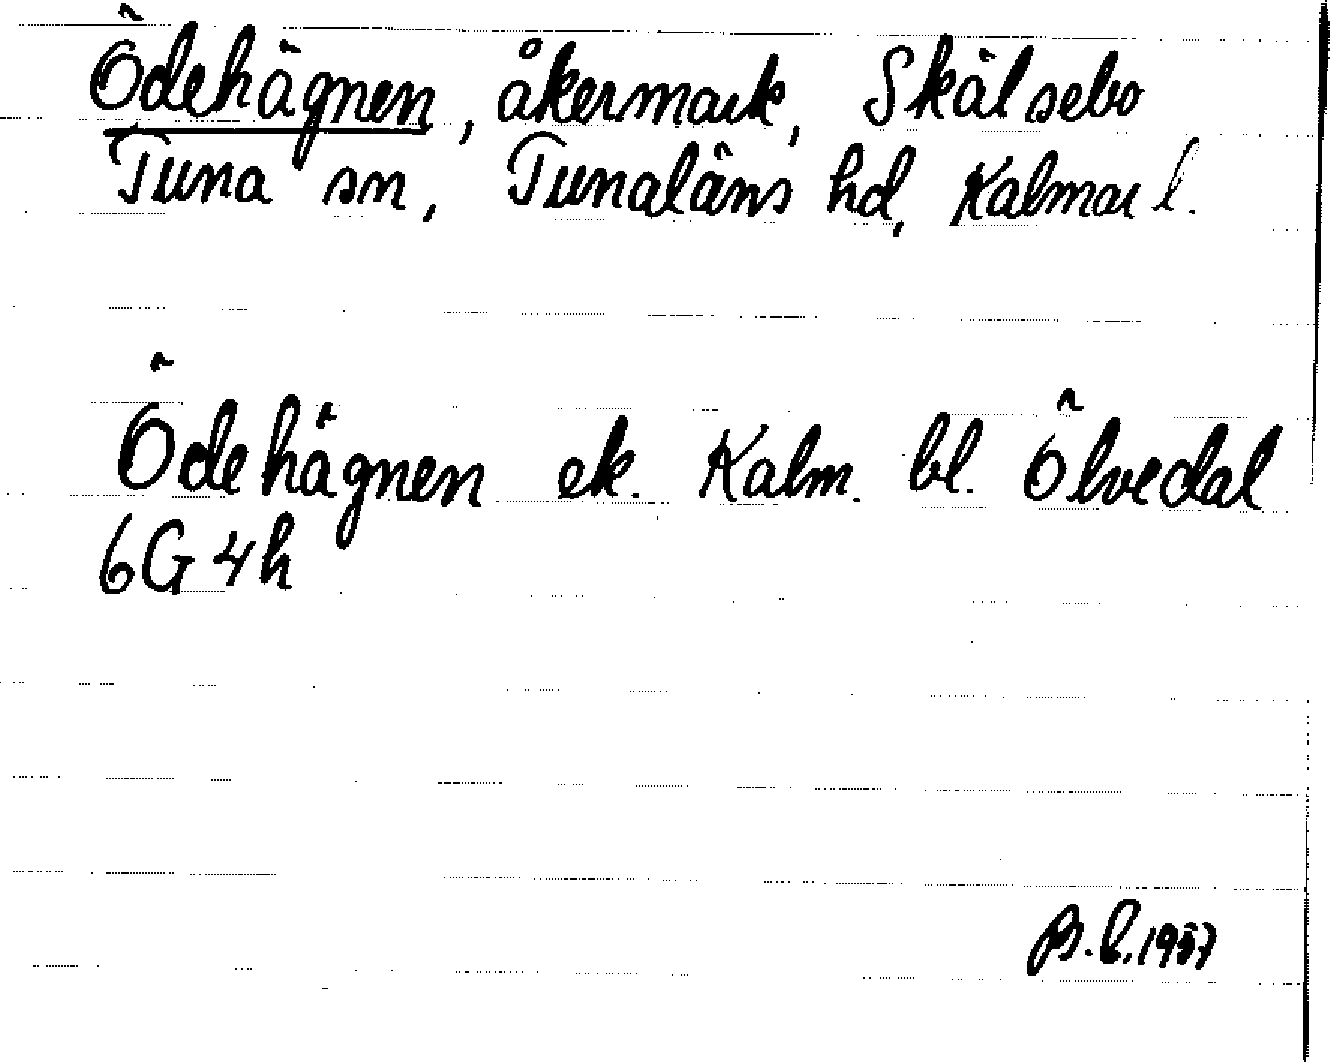 Ödehägnen, åkermark, Skälsebo
Tuna sn, Tunaläns hd, Kalmar l.
Ödehägnen ek. Kalm. bl. Ölvedal
6G4h